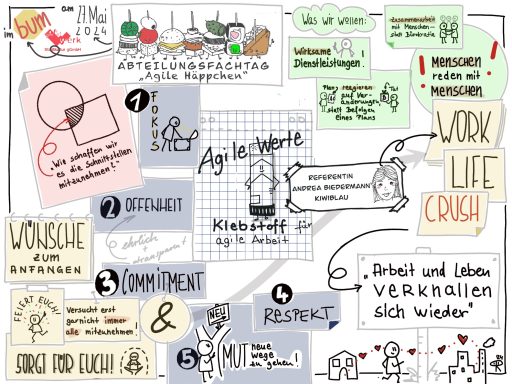 am 27. Mai
2024
im bum
werk
ABTEILUNGSFACHTAG
„Agile Häppchen"
Was wir wollen:
Wirksame
Dienstleistungen!
Zusammenarbeit
mit Menschen
statt Bürokratie
Plan, reagieren
auf Ver-
änderungen,
statt Befolgen
eines Plans
! MENSCHEN !
reden mit
MENSCHEN
„Wie schaffen wir
es die Schnittstellen
mitzunehmen?"
1 FOKUS
2 OFFENHEIT
ehrlich +
transparent
3 COMMITMENT
4 RESPEKT
5 MUT neue
wege
zu gehen!
NEU
Agile Werte
Klebstoff für
agile Arbeit
REFERENTIN
ANDREA BIEDERMANN
KIWIBLAU
WORK
LIFE
CRUSH
„Arbeit und Leben
VERKNALLEN
sich wieder"
WÜNSCHE
ZUM
ANFANGEN
FEIERT EUCH!
Versucht erst
garnicht immer
alle mitzunehmen!
&
SORGT FÜR EUCH!